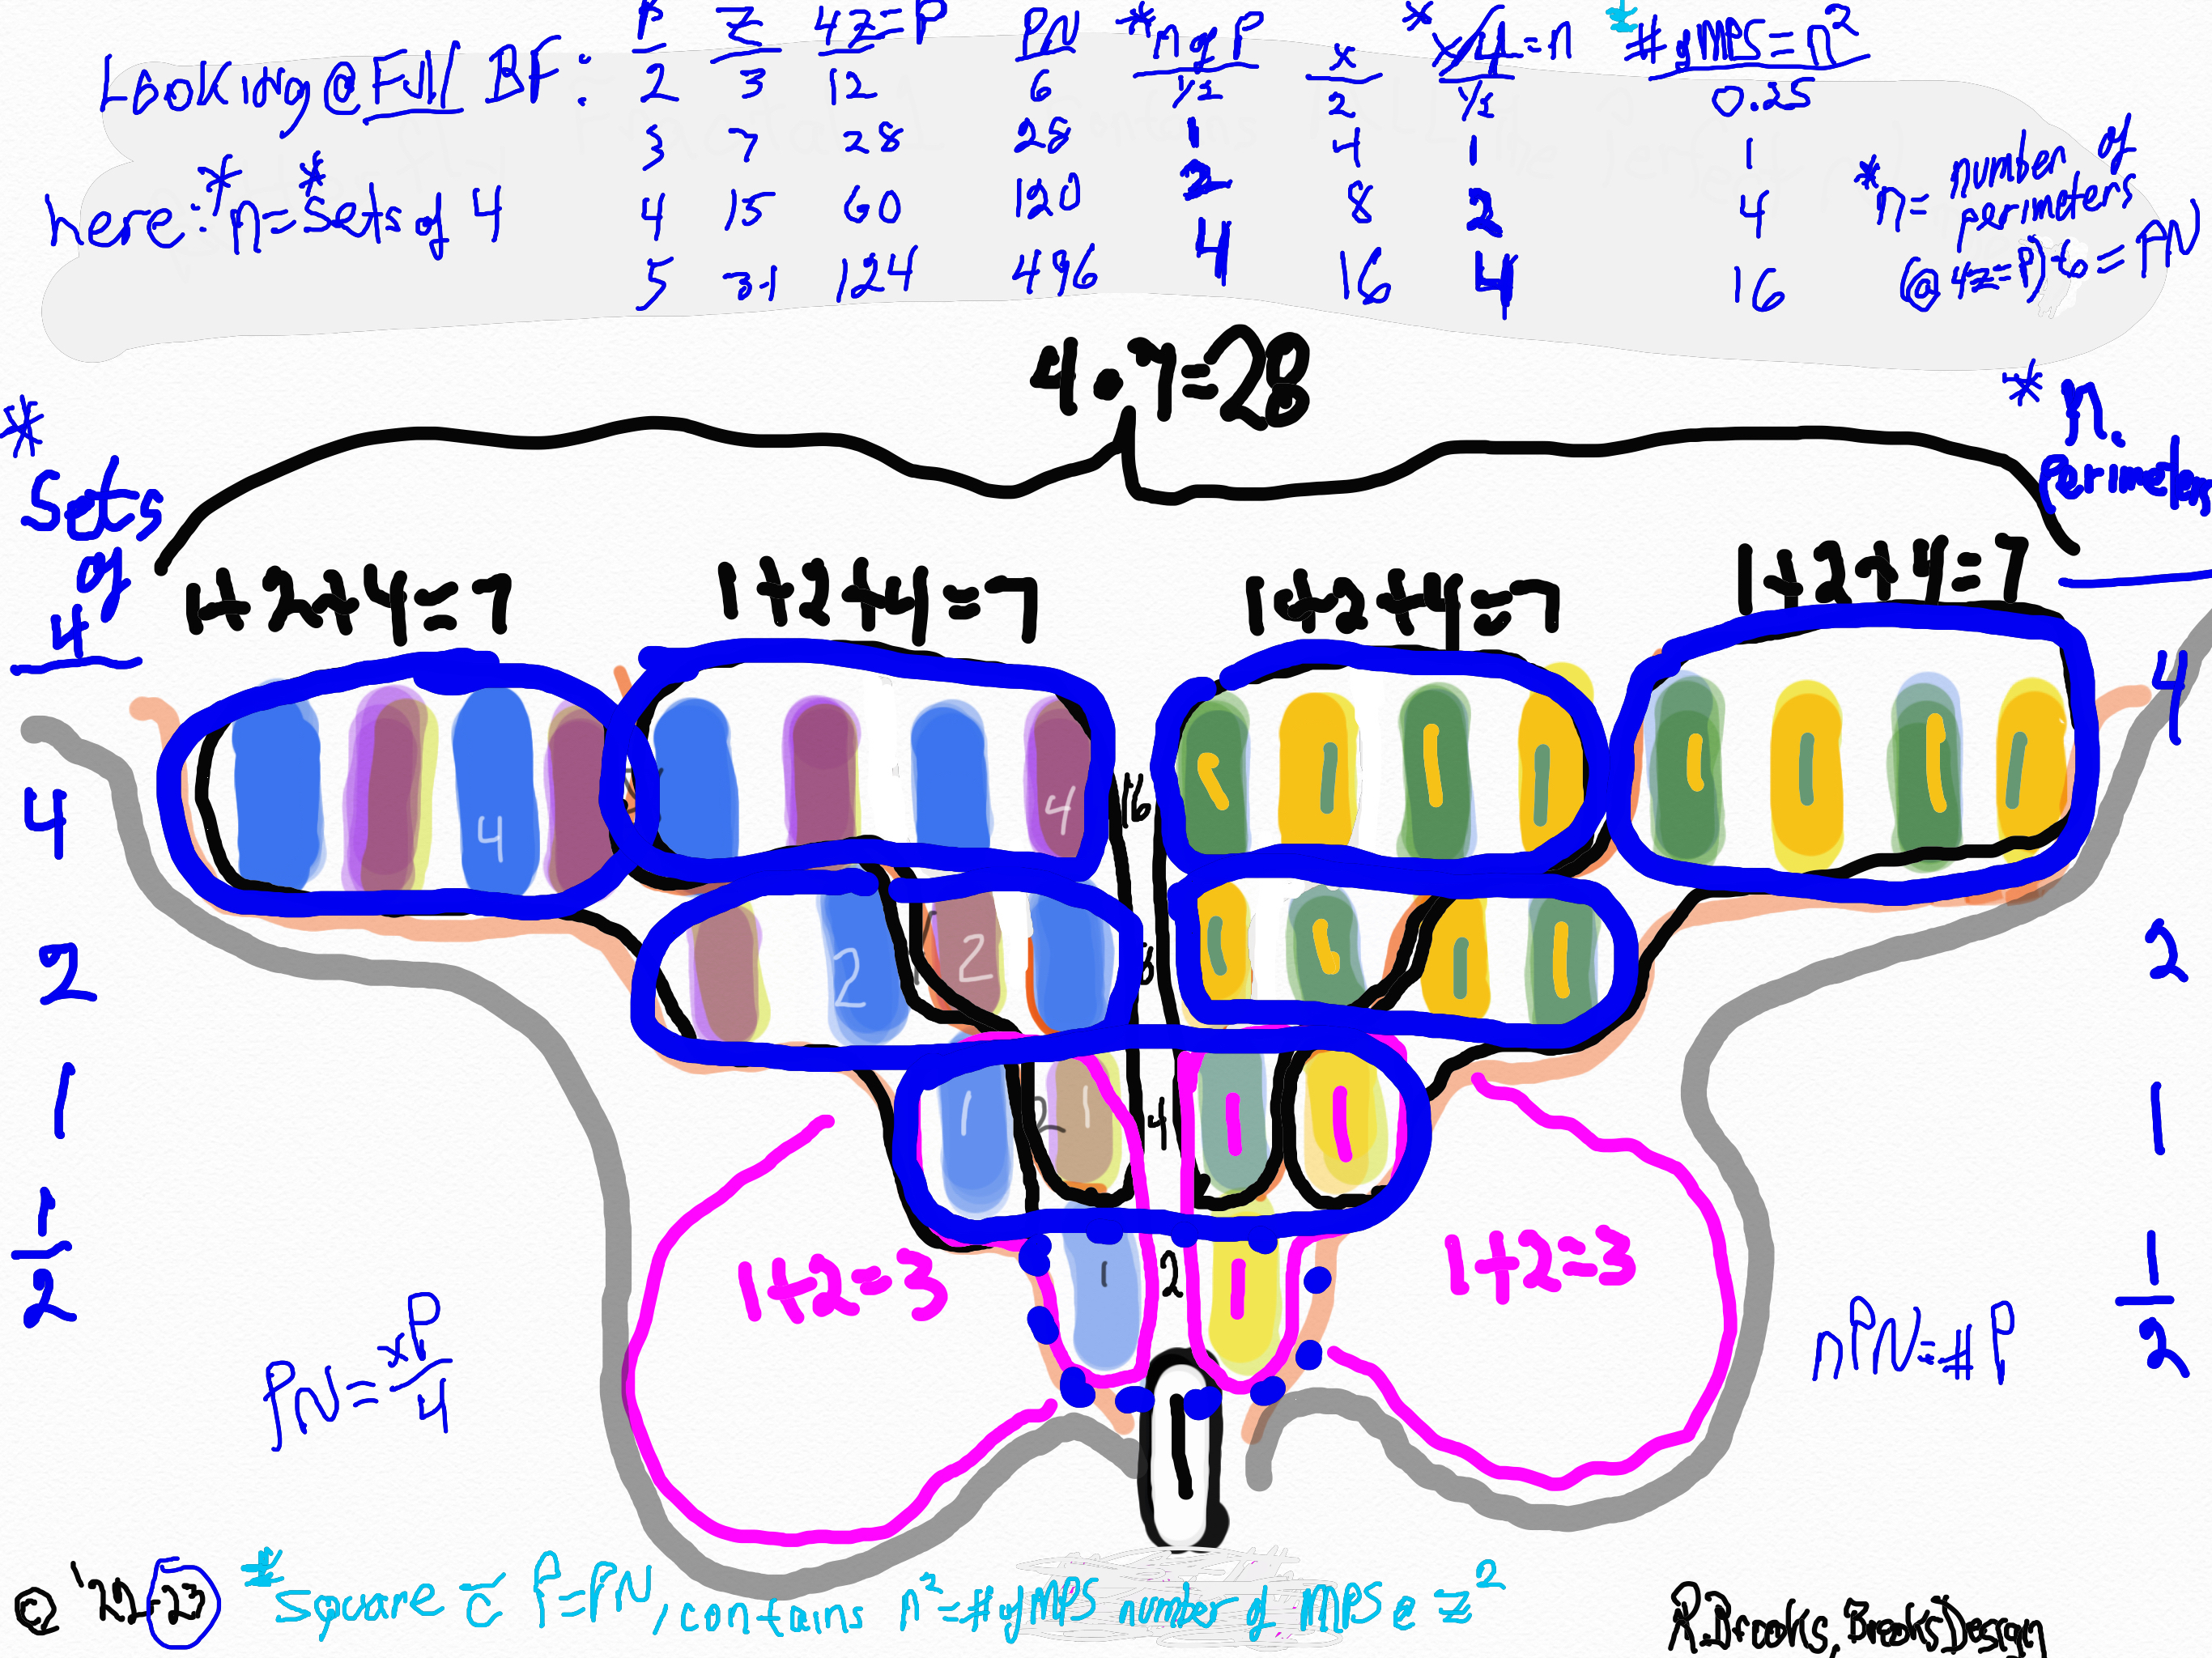 Looking @ Full BF:
here: *n = *sets of 4
p z 4z=P PN *n of P x *x/4=n *# of MPS=n²
2 3 12 6 1/2 2 1/2 0.25
3 7 28 28 1 4 1 1
4 15 60 120 2 8 2 4
5 31 124 496 4 16 4 16
*n= number of
perimeters
(@ 4z=P) to = PN
4·7=28
* sets
of
4
* n.
perimeters
1+2+4=7 1+2+4=7 1+2+4=7 1+2+4=7
4 4 4 16 1 1 1 1 1 1 1 1 4
2 2 2 8 1 1 1 1 2
1 1 2 1 4 1 1 1
1/2 1 2 1 1/2
1+2=3 1+2=3
PN = xP/4
nPN=#P
1
© '22-23 *square c̄ P=PN, contains n²=# of MPS number of MPS @ z²
R.Brooks, BrooksDesign